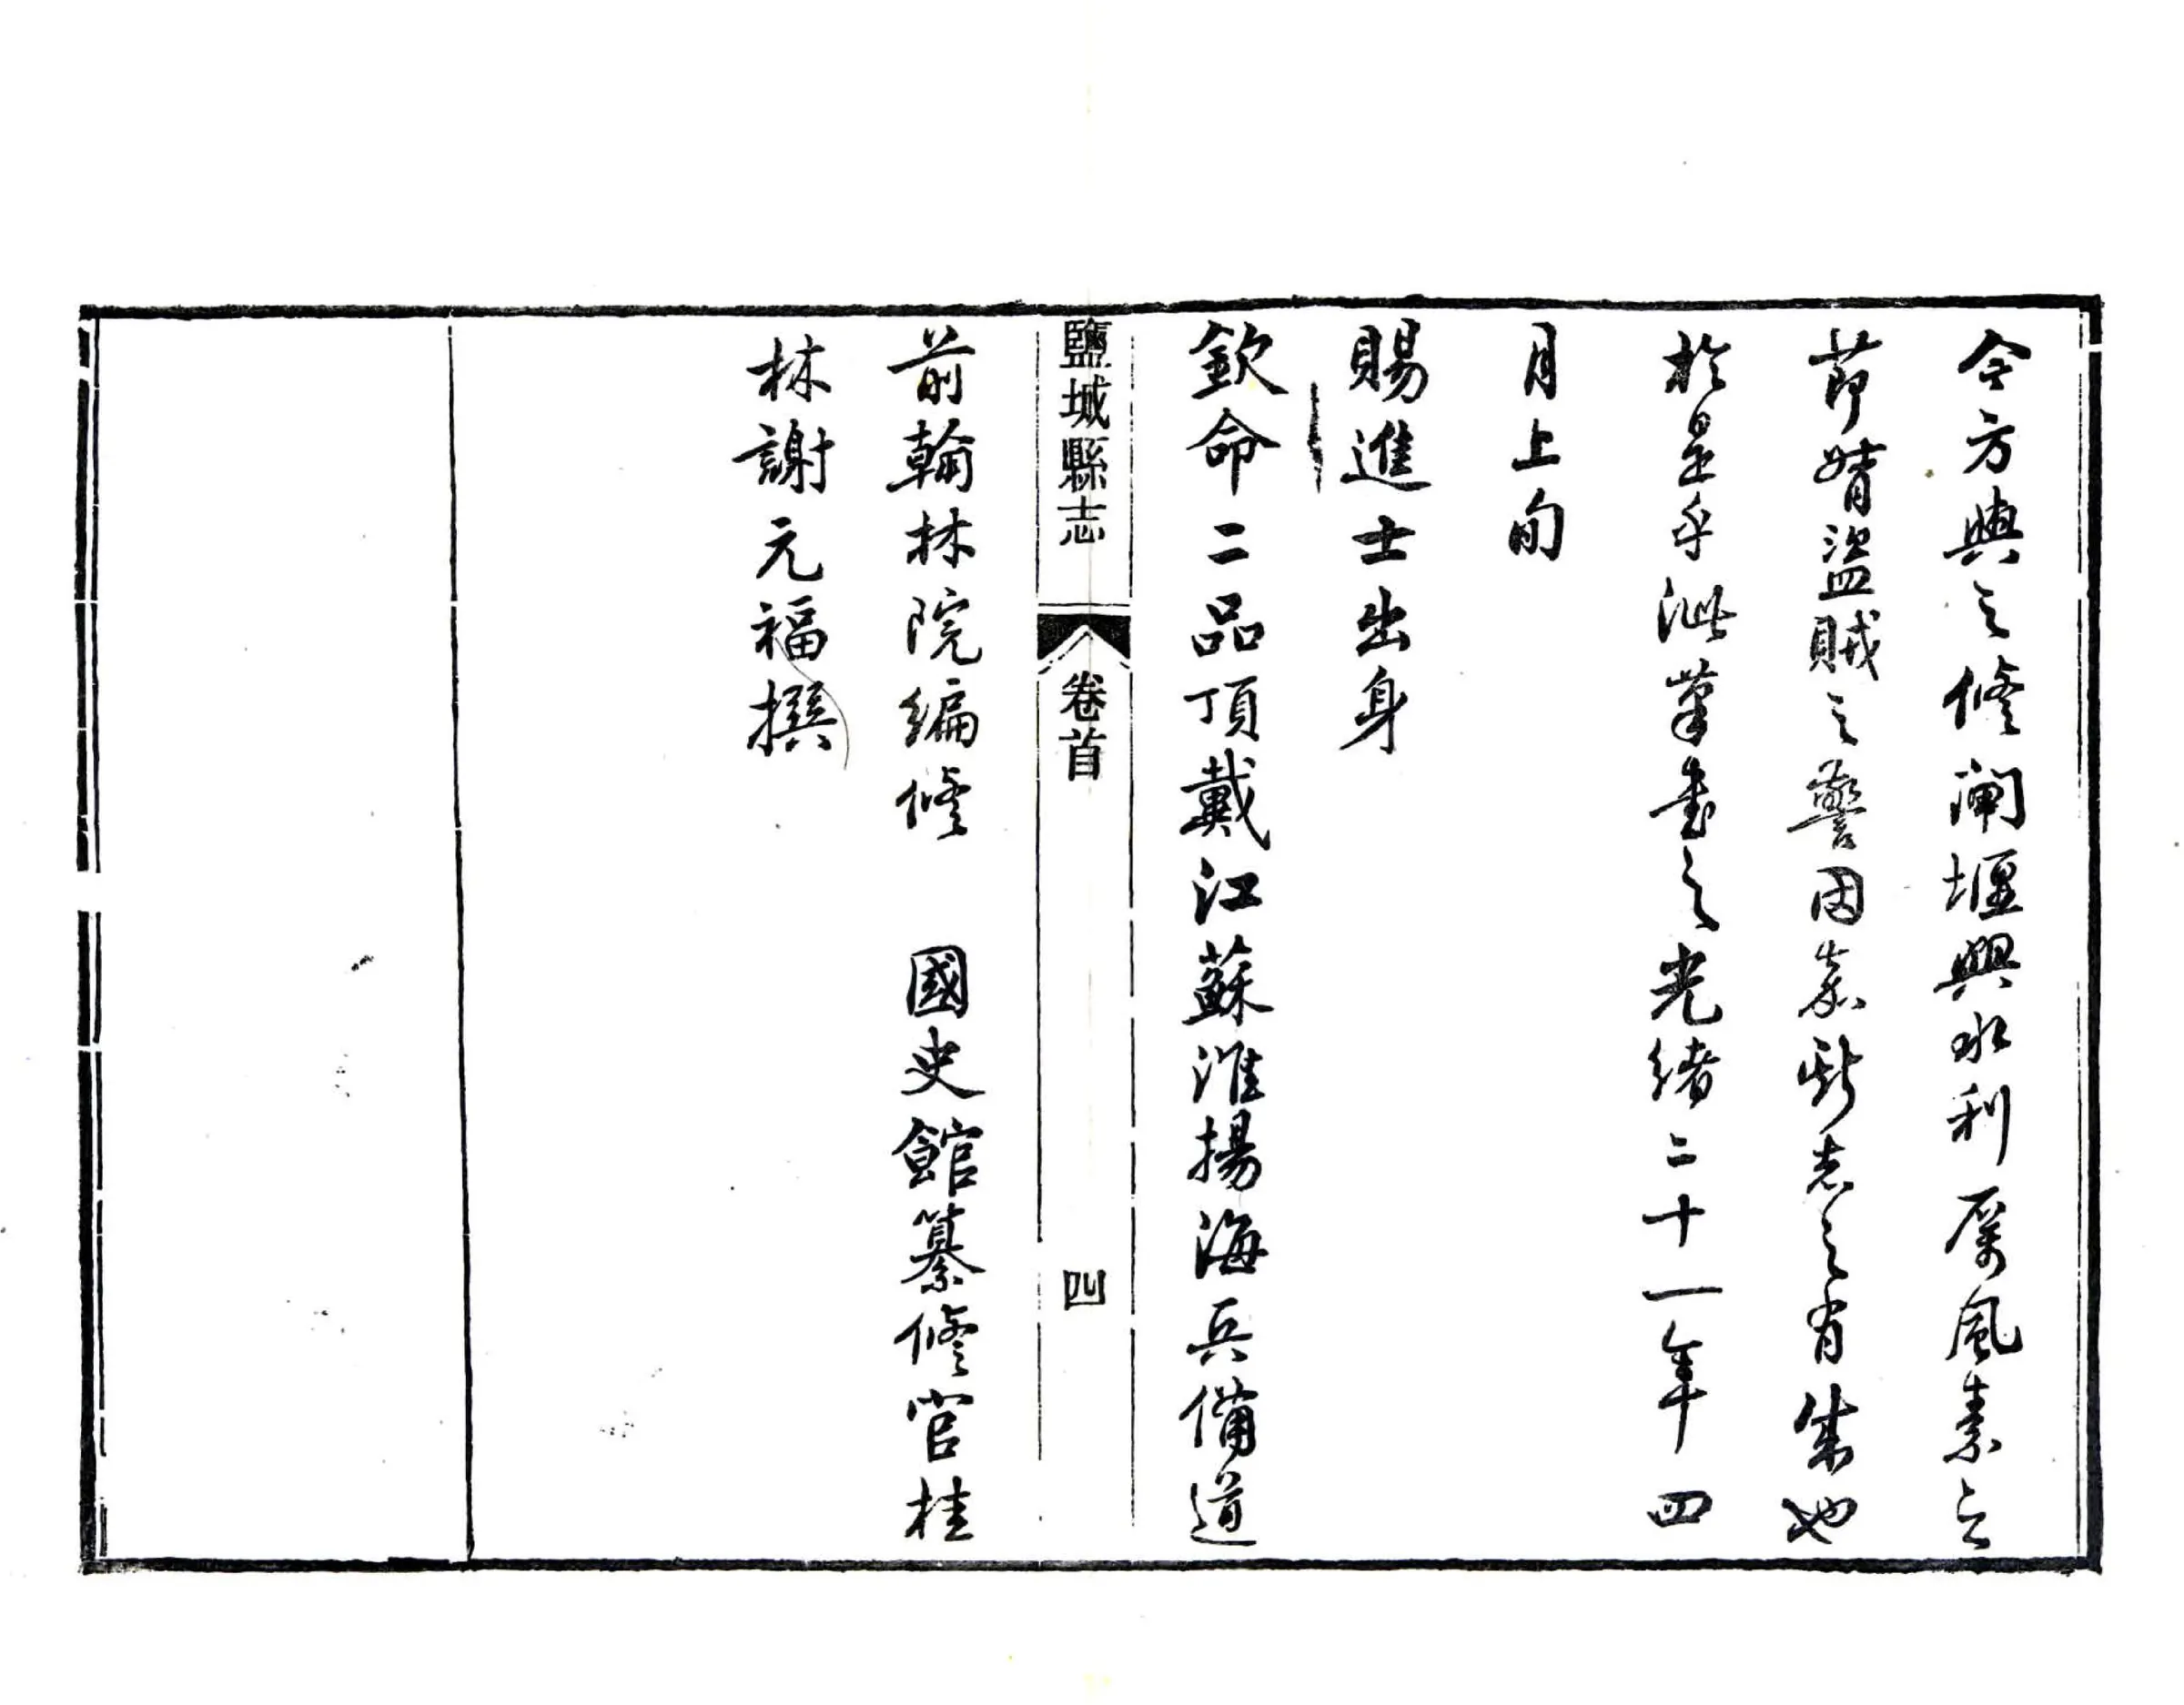 令方與之修閘堰興水利厲風素之
節靖盜賊之警因嘉新志之有成也
於是乎泚筆書之光緒二十一年四
月上旬
賜進士出身
欽命二品頂戴江蘇淮揚海兵備道
鹽城縣志 卷首 四
前翰林院編修 國史館纂修官桂
林謝元福撰